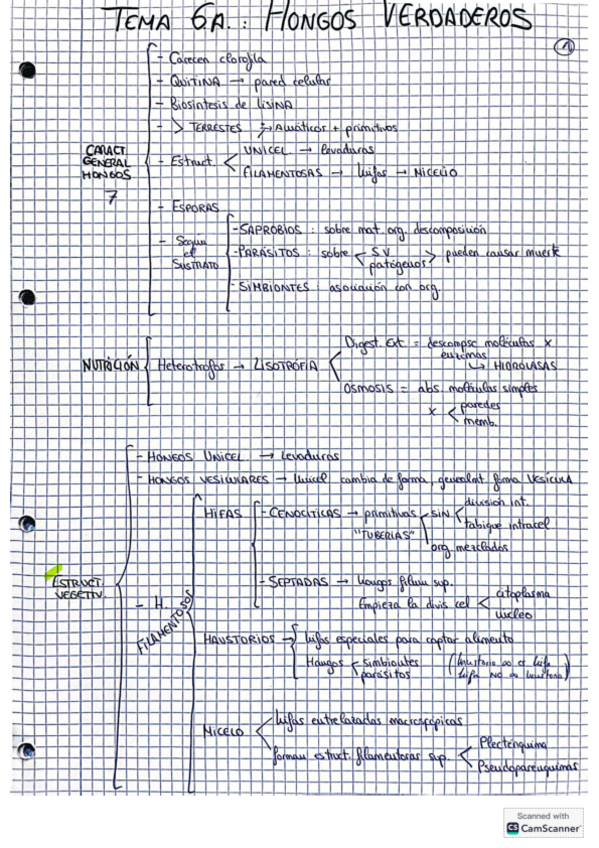 TEMA 6A.: HONGOS VERDADEROS
1
CARACT. GENERAL HONGOS
7
- Carecen clorofila
- QUITINA → pared celular
- Biosíntesis de LISINA
- > TERRESTES ; → Acuáticos + primitivos
- Estruct. < UNICEL → levaduras
FILAMENTOSAS → hifas → MICELIO
- ESPORAS
- Según el SUSTRATO
- SAPROBIOS : sobre mat. org. descomposición
- PARÁSITOS : sobre < SV patógenos > pueden causar muerte
- SIMBIONTES : asociación con org.
NUTRICIÓN
Heterotrofos → LISOTROFIA
Digest. Ext = descompse moléculas x enzimas
↳ HIDROLASAS
OSMOSIS = abs. moléculas simples
x < paredes
memb.
ESTRUCT. VEGETIV.
- HONGOS UNICEL → Levaduras
- HONGOS VESICULARES → Unicel cambia de forma, generalmt forma VESÍCULA
- H. FILAMENTOSOS
HIFAS
- CENOCÍTICAS → primitivas < SIN < división int.
tabique intracel
"TUBERÍAS"
org mezclados
- SEPTADAS → Hongos filam sup.
Empieza la divis cel < citoplasma
núcleo
HAUSTORIOS → hifas especiales para captar alimento
Hongos < simbiontes
parásitos
(haustorio es hifa
hifa NO es haustorio)
MICELIO
hifas entrelazadas macroscópicas
forman estruct. filamentosas sup. < Plecténquima
Pseudoparenquimas
Scanned with
CS CamScanner